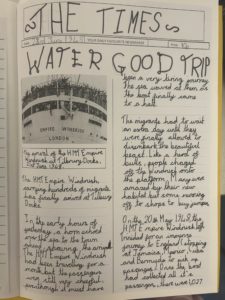 THE TIMES
WATER GOOD TRIP
EMPIRE WINDRUSH
LONDON
The arrival of the HMT Empire
Windrush at Tilbury Docks,
The HMT Empire Windrush,
carrying hundreds of migrants
has finally arrived at Tilbury
Docks.
In the early hours of
yesterday, a horn echoed
over the sea to the
The HMT Empire Windrush
had been travelling for a
month but the passengers
were still very cheerful,
although it must have
been a very tiring journey.
The sea waved at them as
the boat finally came
to a halt.
The migrants had to wait
an extra day until they
were finally allowed to
disembark the beautiful
beast. Like a herd of
bulls, people charged
off the Windrush onto
the platform. Many were
amazed by their new
habitat but some running
off to shops to buy jumpers.
On the 20th May 1948, the
HMT Empire Windrush left
journey to England stopping
at Jamaica,
and Bermuda to pick up
passengers. Once the boat
had collected all its
passengers, there was 1,027